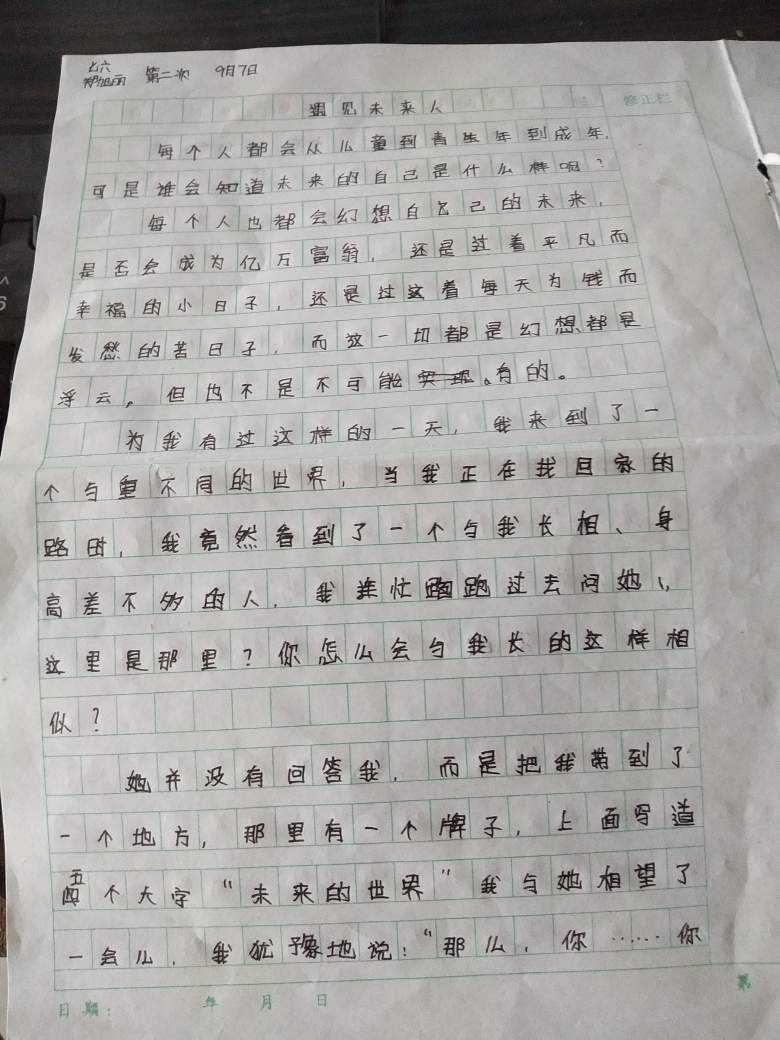 七六
第二次 9月7日
遇见未来人 修正栏
每个人都会从儿童到青年到成年,
可是谁会知道未来的自己是什么样呢?
每个人也都会幻想自己的未来,
是否会成为亿万富翁, 还是过着平凡而
幸福的小日子, 还是过这着每天为钱而
发愁的苦日子. 而这一切都是幻想都是
浮云。但也不是不可能有的。
为我有过这样的一天, 我来到了一
个与重不同的世界, 当我正在我回家的
路时, 我竟然看到了一个与我长相、身
高差不多的人. 我连忙跑过去问她,
这里是那里?你怎么会与我长的这样相
似?
她并没有回答我. 而是把我带到了
一个地方, 那里有一个牌子, 上面写道
五个大字“未来的世界”我与她相望了
一会儿. 我犹豫地说:“那么, 你……你
日期: 年 月 日 第